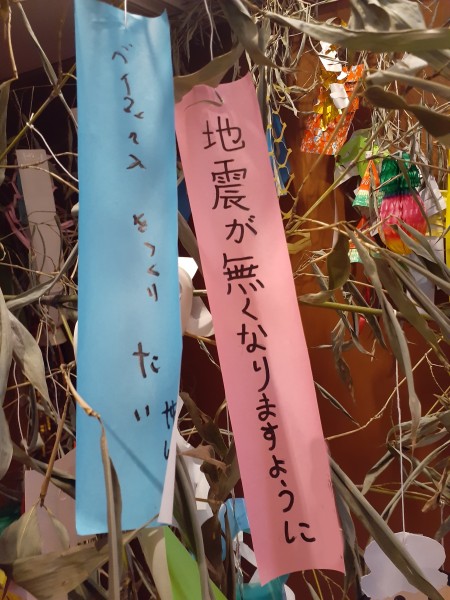 地震が無くなりますように
ベイマックス
をつくり
たい